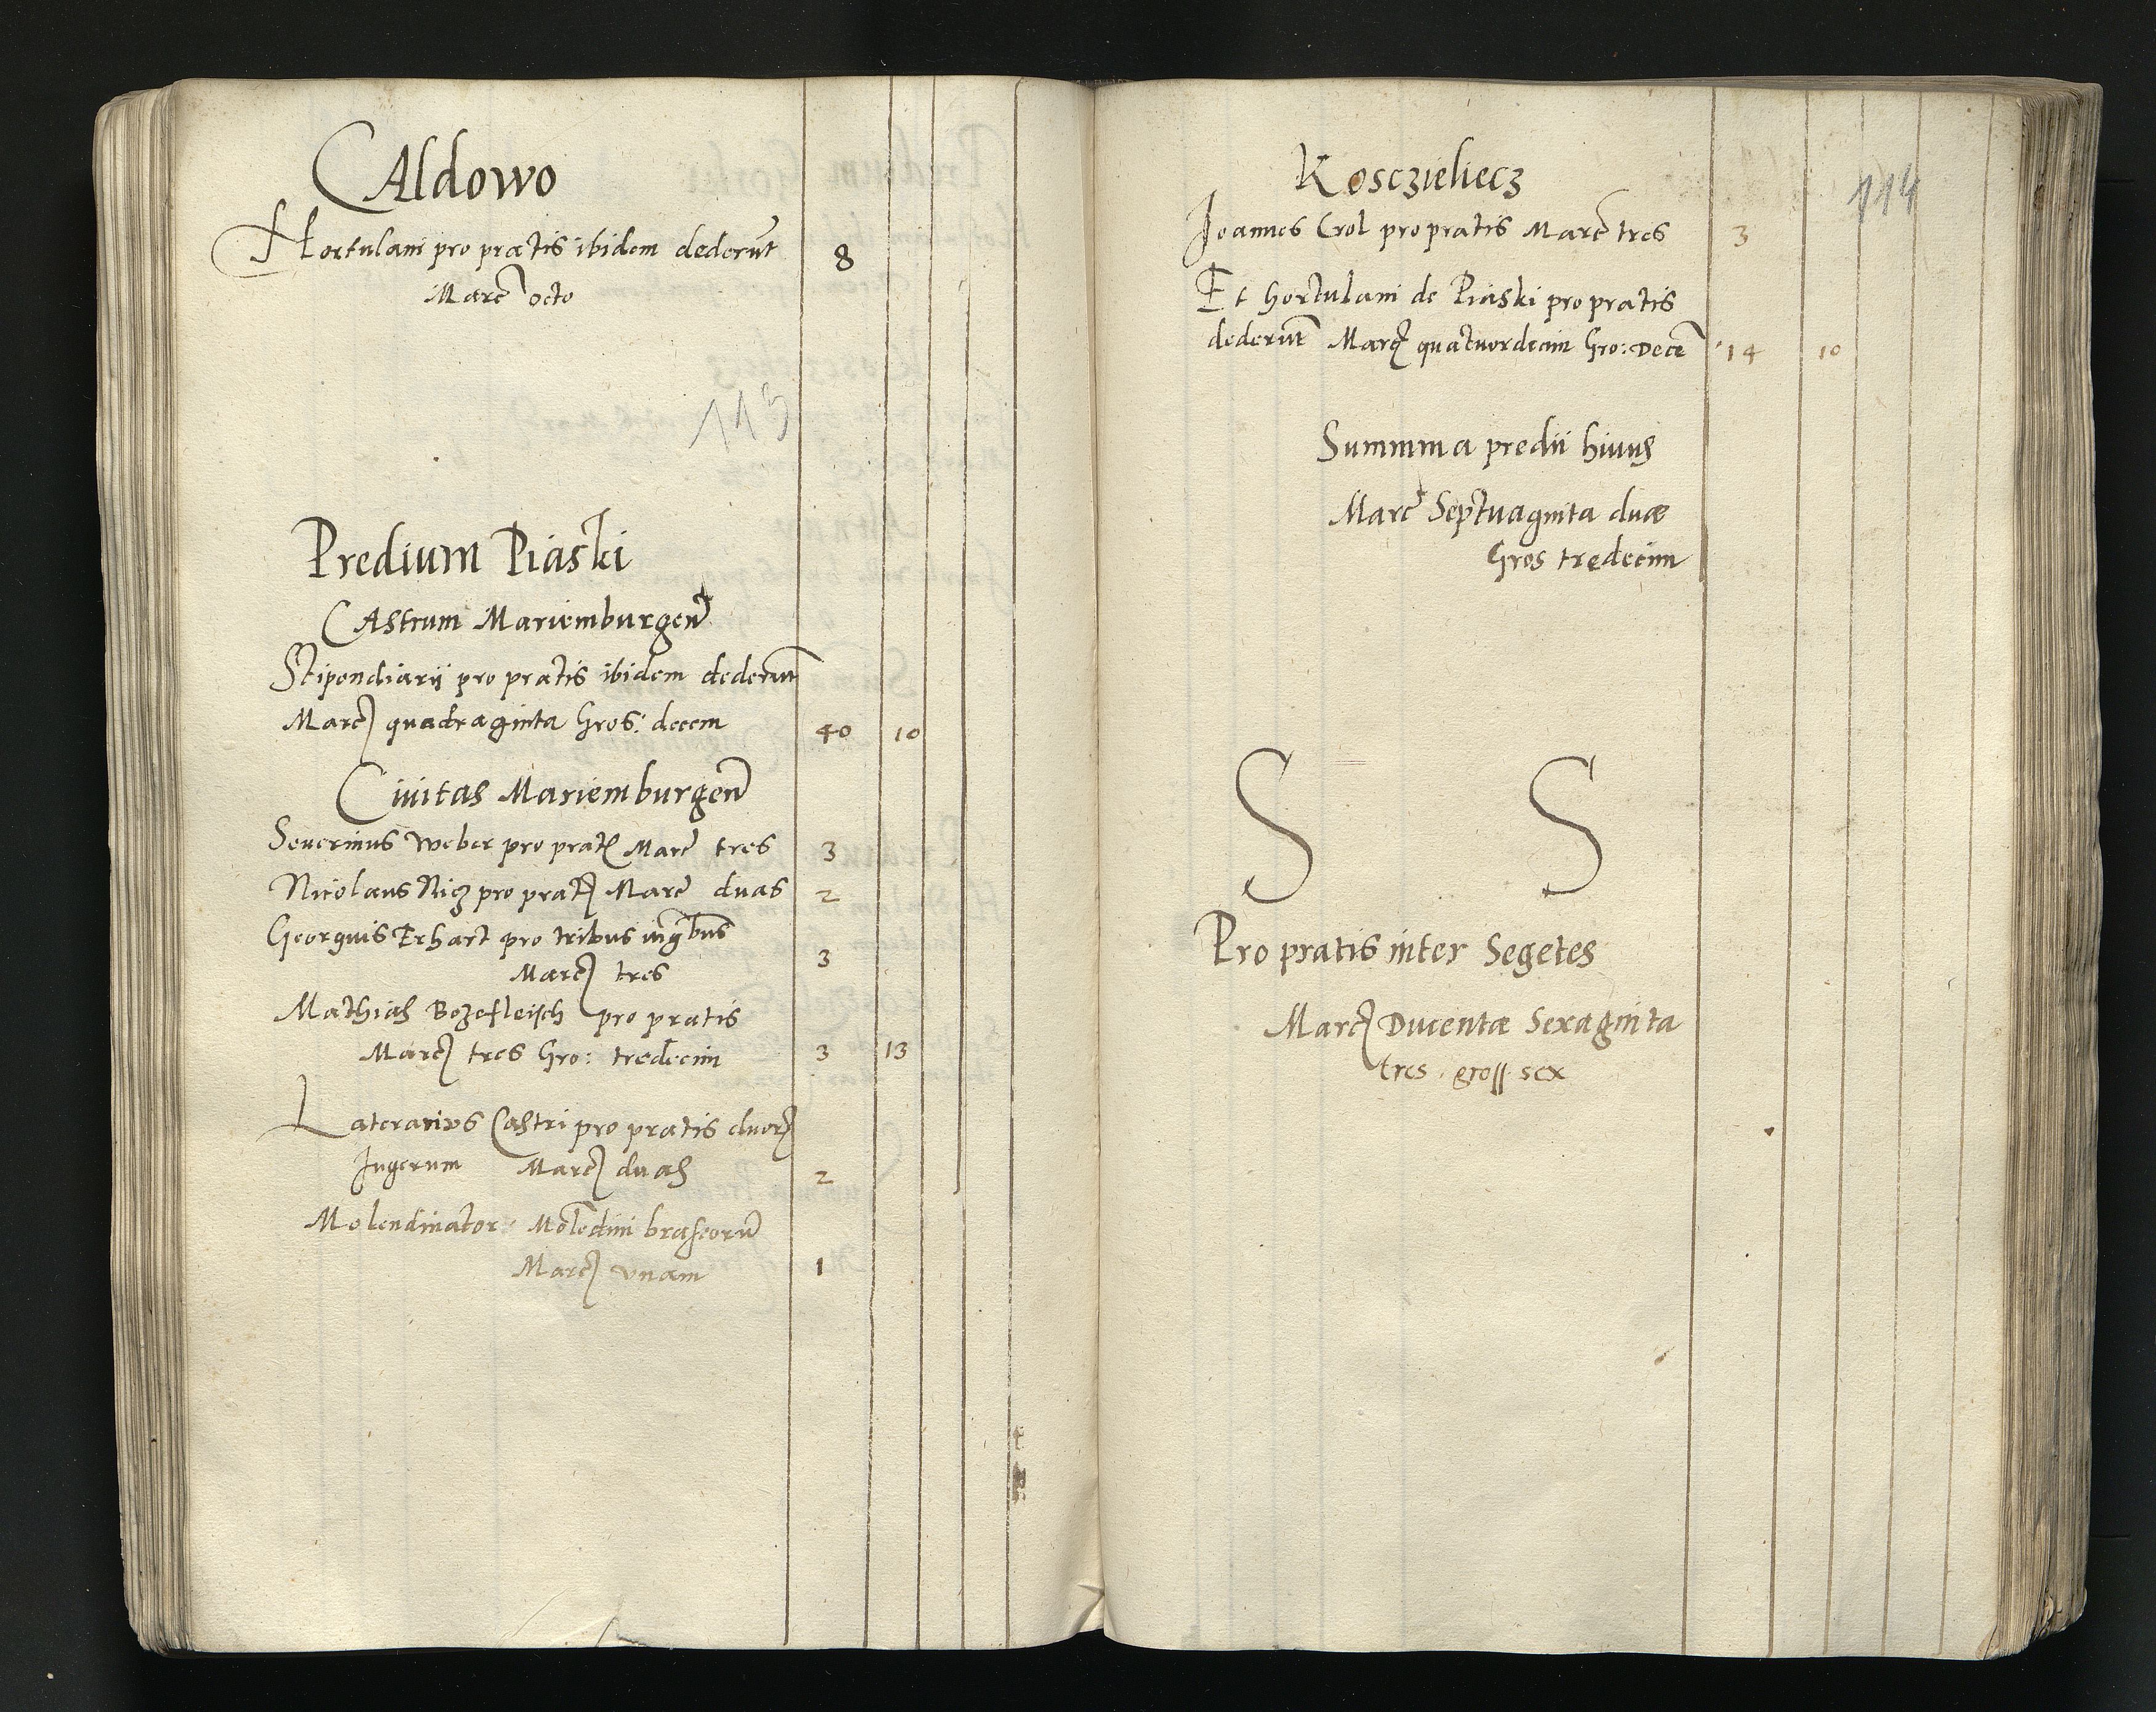 CAldowo
Hortulani pro pratis ibidem dederūt 8
Marc octo
113
Predium Piaski
CAstrum Mariemburgen
Stipendiarii pro pratis ibidem dederunt
Marc quadraginta Gros: decem 40 10
Ciuitas Mariemburgen
Seuerinus Weber pro prat Marc tres 3
Nicolaus Nicz pro prat Marc duas 2
Georgius Erhart pro tribus iugbus
Marc tres 3
Mathias Bozefleisch pro pratis
Marc tres Gro: tredecim 3 13
Laterarius Castri pro pratis duor
Iugerum Marc duas 2
Molendinator Molēdini braseorū
Marc vnam 1
Kosczieliecz
114
Ioannes Crol pro pratis Marc tres 3
Et hortulani de Piaski pro pratis
dederūt Marc quatuordecim Gro: Decē 14 10
Summa predii huius
Marc Septuaginta duæ
Gros tredecim
S S
Pro pratis inter Segetes
Marc Ducentæ Sexaginta
tres gross sex